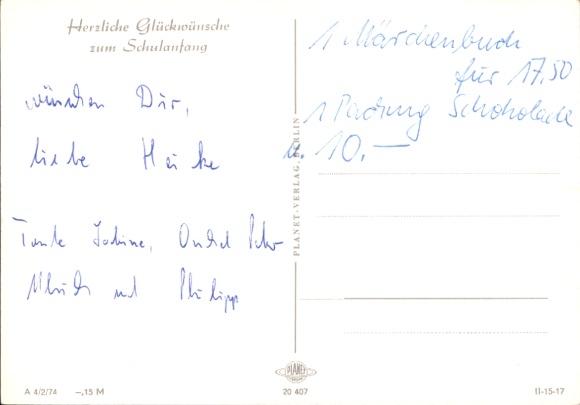 Herzliche Glückwünsche
zum Schulanfang
wünschen Dir,
liebe Heike
Tante Sabine, Onkel Peter
Ulrich und Philipp
1 Märchenbuch
für 17,50
1 Packung Schokolade
u. 10.—
PLANET-VERLAG, BERLIN
PLANET
A 4/2/74
–,15 M
20 407
II-15-17